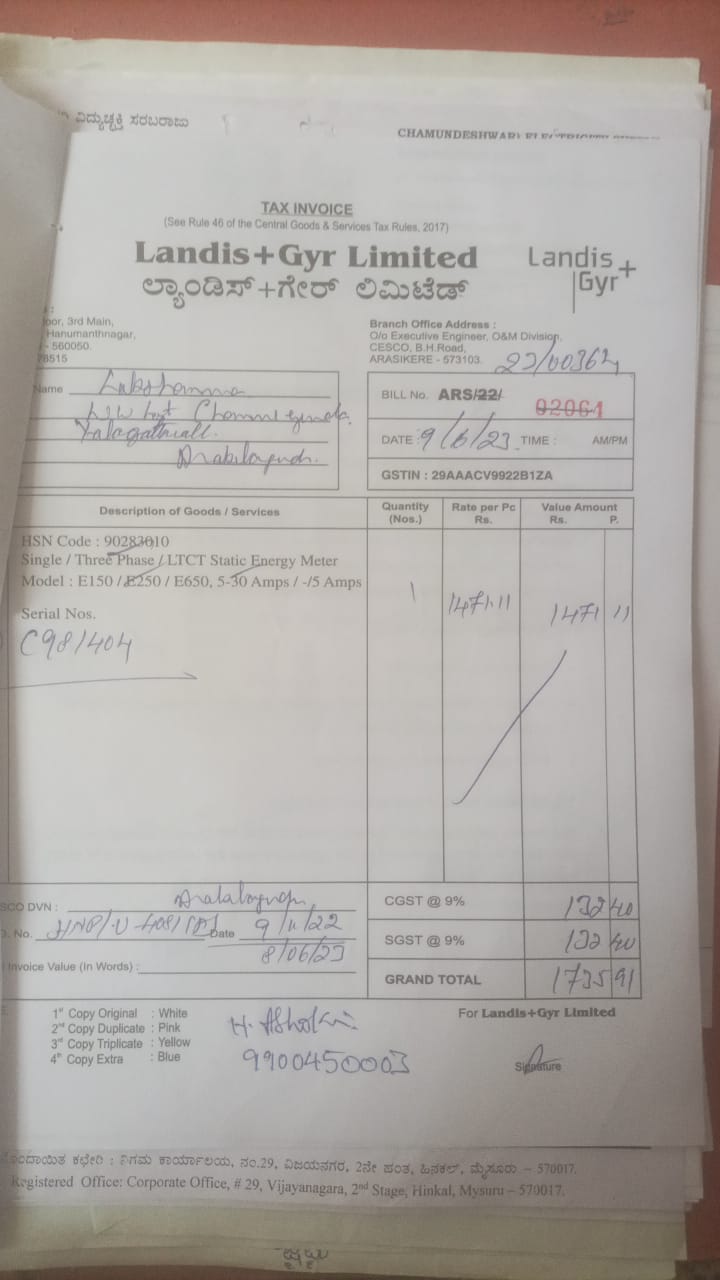 ವಿದ್ಯುಚ್ಛಕ್ತಿ ಸರಬರಾಜು
CHAMUNDESHWARI
TAX INVOICE
(See Rule 46 of the Central Goods & Services Tax Rules, 2017)
Landis+Gyr Limited
Landis+
Gyr
ಲ್ಯಾಂಡಿಸ್+ಗೇರ್ ಲಿಮಿಟೆಡ್
3rd Main,
Hanumanthnagar,
- 560050.
Branch Office Address :
O/o Executive Engineer, O&M Division,
CESCO, B.H.Road,
ARASIKERE - 573103.
22/00362
Name Lakshamma
BILL No. ARS/22/ 02061
DATE : 9/6/23 TIME : AM/PM
GSTIN : 29AAACV9922B1ZA
Description of Goods / Services
Quantity
(Nos.)
Rate per Pc
Rs.
Value Amount
Rs. P.
HSN Code : 90283010
Single / Three Phase / LTCT Static Energy Meter
Model : E150 / E250 / E650, 5-30 Amps / -/5 Amps
1 1471.11 1471 11
Serial Nos.
C981404
DVN :
CGST @ 9% 132 40
No. Date 9/11/22
SGST @ 9% 132 40
8/06/23
Invoice Value (In Words) :
GRAND TOTAL 1735 91
1st Copy Original : White
2nd Copy Duplicate : Pink
3rd Copy Triplicate : Yellow
4th Copy Extra : Blue
H. Ashok
9900450003
For Landis+Gyr Limited
Signature
ಕಛೇರಿ : ನಿಗಮ ಕಾರ್ಯಾಲಯ, ನಂ.29, ವಿಜಯನಗರ, 2ನೇ ಹಂತ, ಹಿನಕಲ್, ಮೈಸೂರು – 570017.
Registered Office: Corporate Office, # 29, Vijayanagara, 2nd Stage, Hinkal, Mysuru – 570017.